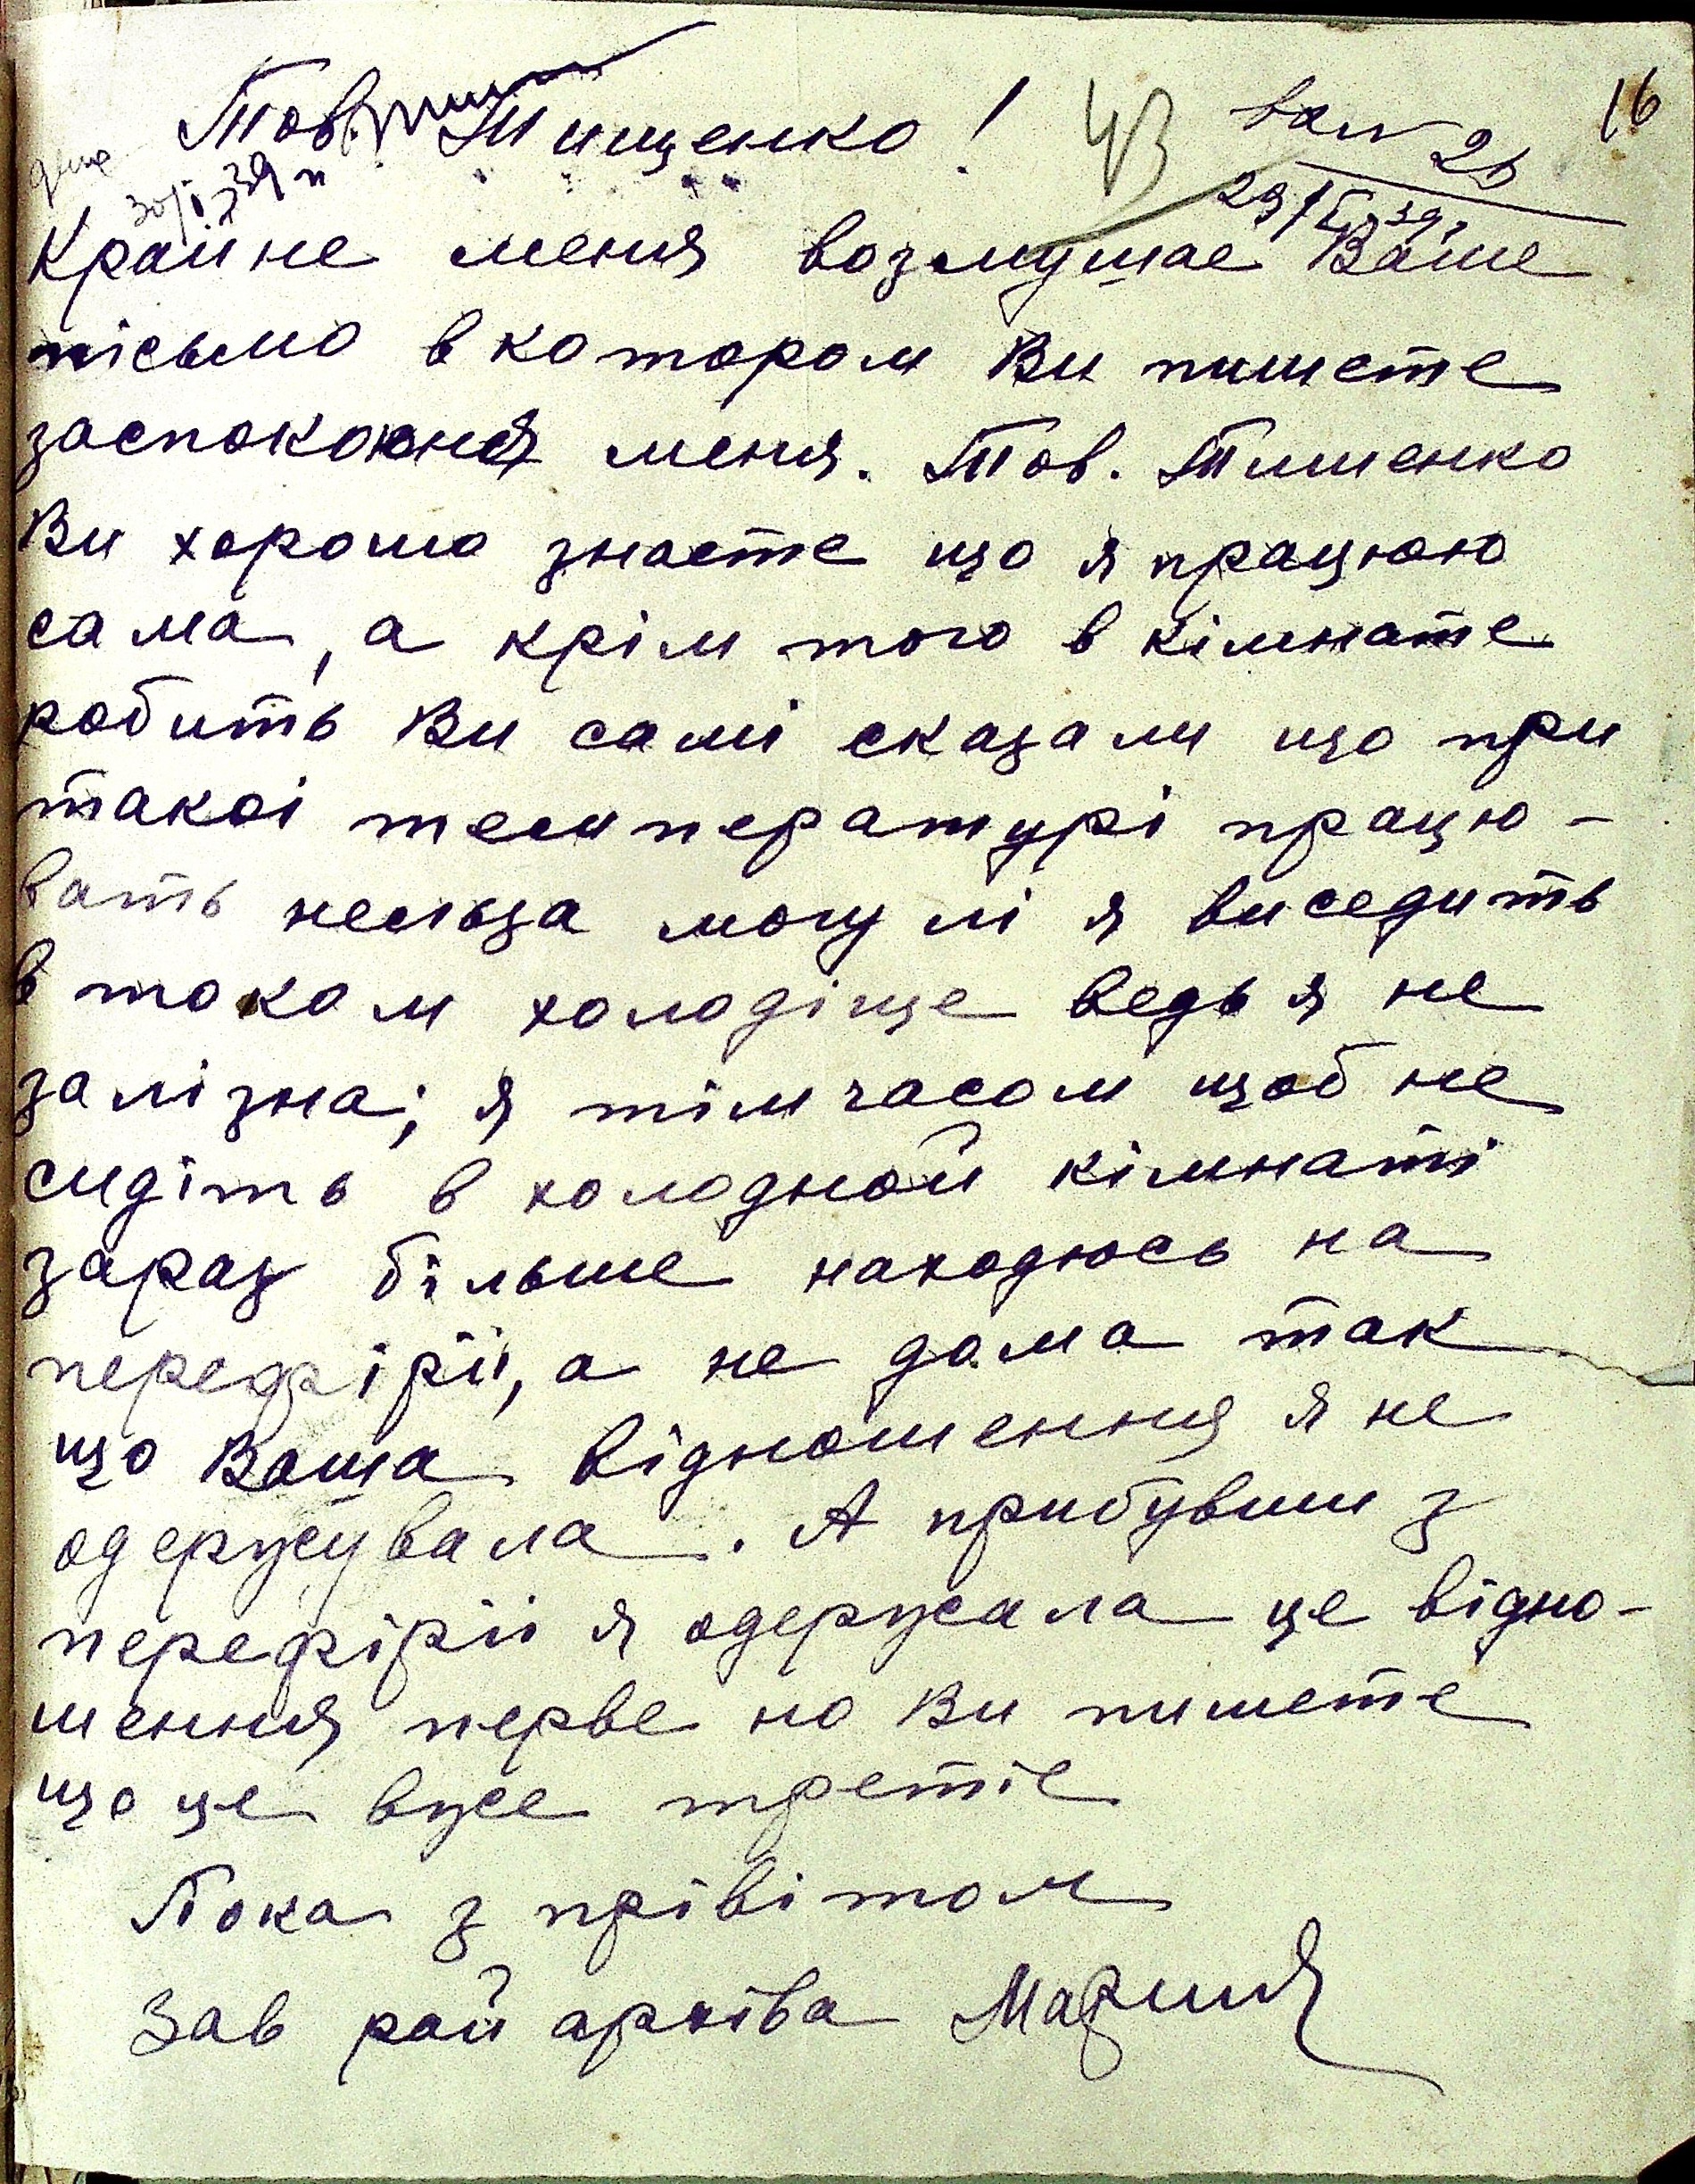 16
43
вх № 25
29/I-39г
Тов. Тищенко!
30/I-39 п
Крайне меня возмущае Ваше
пісьмо в котором Ви пишете
заспокоюня меня. Тов. Тишенко
Ви хорошо знаєте що я працюю
сама, а крім того в кімнате
робить Ви сами сказали що при
такоі температурі працю-
вать нельза могу лі я виседить
в таком холодіще ведь я не
залізна; я тім часом щоб не
сидіть в холодной кімнаті
зараз більше находюсь на
перефіріі, а не дома так
що Ваша відношення я не
одержувала. А прибувши з
перефіріі я одержала це відно-
шення перве но Ви пишете
що це вже третіе
Пока з прівітом
Зав рай архіва